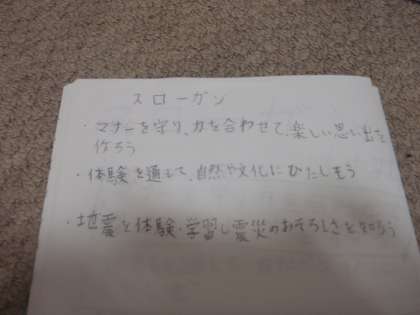 スローガン
・マナーを守り、力を合わせて、楽しい思い出を
作ろう
・体験を通して、自然や文化にひたしもう
・地震を体験・学習し震災のおそろしさを知ろう